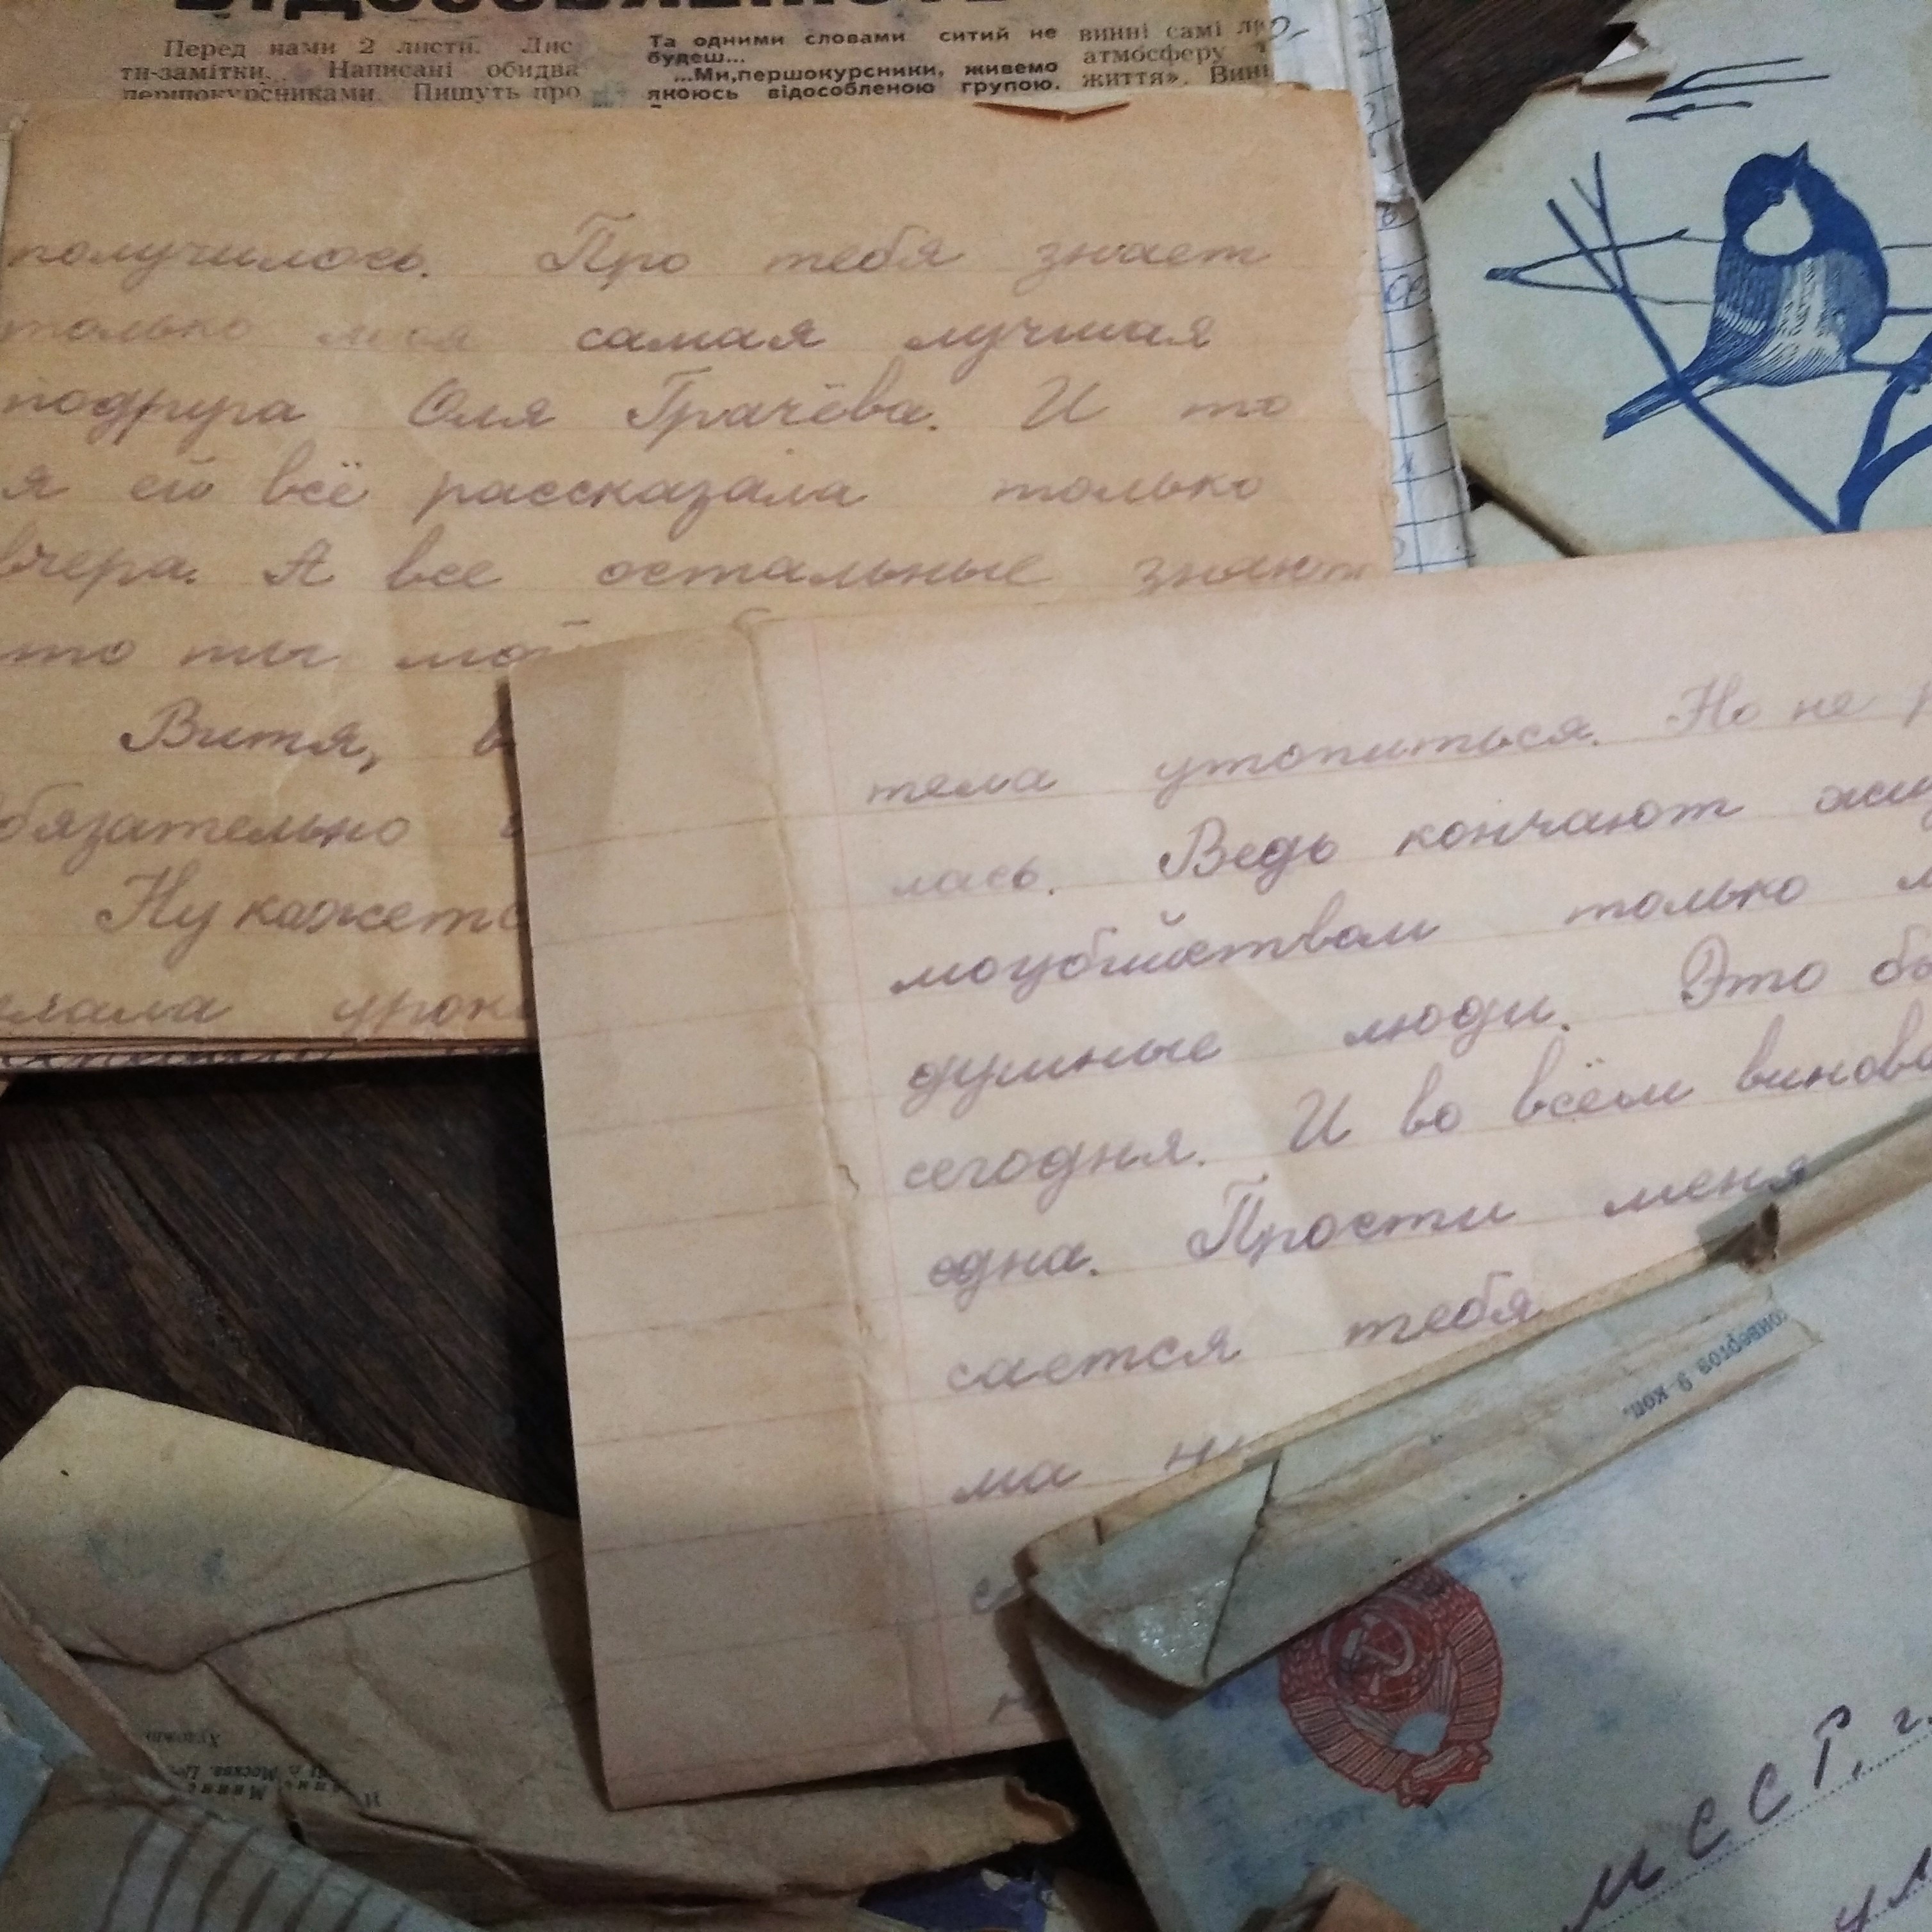 Перед нами 2 листи. Лис
ти-замітки. Написані обидва
першокурсниками. Пишуть про
Та одними словами ситий не
будеш...
...Ми,першокурсники, живемо
якоюсь відособленою групою.
винні самі
атмосферу
життя».
получилось. Про тебя знает
только моя самая лучшая
подруга Оля Грачёва. И то
я ей всё рассказала только
вчера. А все остальные знают
что ты мой
Витя,
обязательно
Ну кажетс
елала уроки
тела утопиться. Но не р
лась. Ведь кончают жи
моубийством только м
душные люди. Это бы
сегодня. И во всём винова
одна. Прости меня
сается тебя
ма
конвертов 9 коп.
МССР, г.
ул